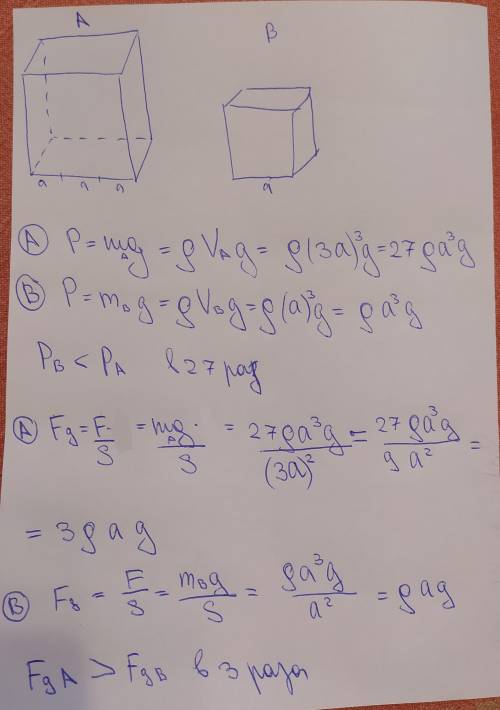 A
B
a a a
a
Ⓐ P = m_A g = ρ V_A g = ρ (3a)³g = 27 ρ a³g
Ⓑ P = m_b g = ρ V_b g = ρ (a)³g = ρ a³g
P_B < P_A в 27 раз
Ⓐ F_g = F/S = m_A g/S = 27 ρ a³g/(3a)² = 27 ρ a³g/9 a² =
= 3 ρ a g
Ⓑ F_g = F/S = m_b g/S = ρ a³g/a² = ρ a g
F_g A > F_g B в 3 раза